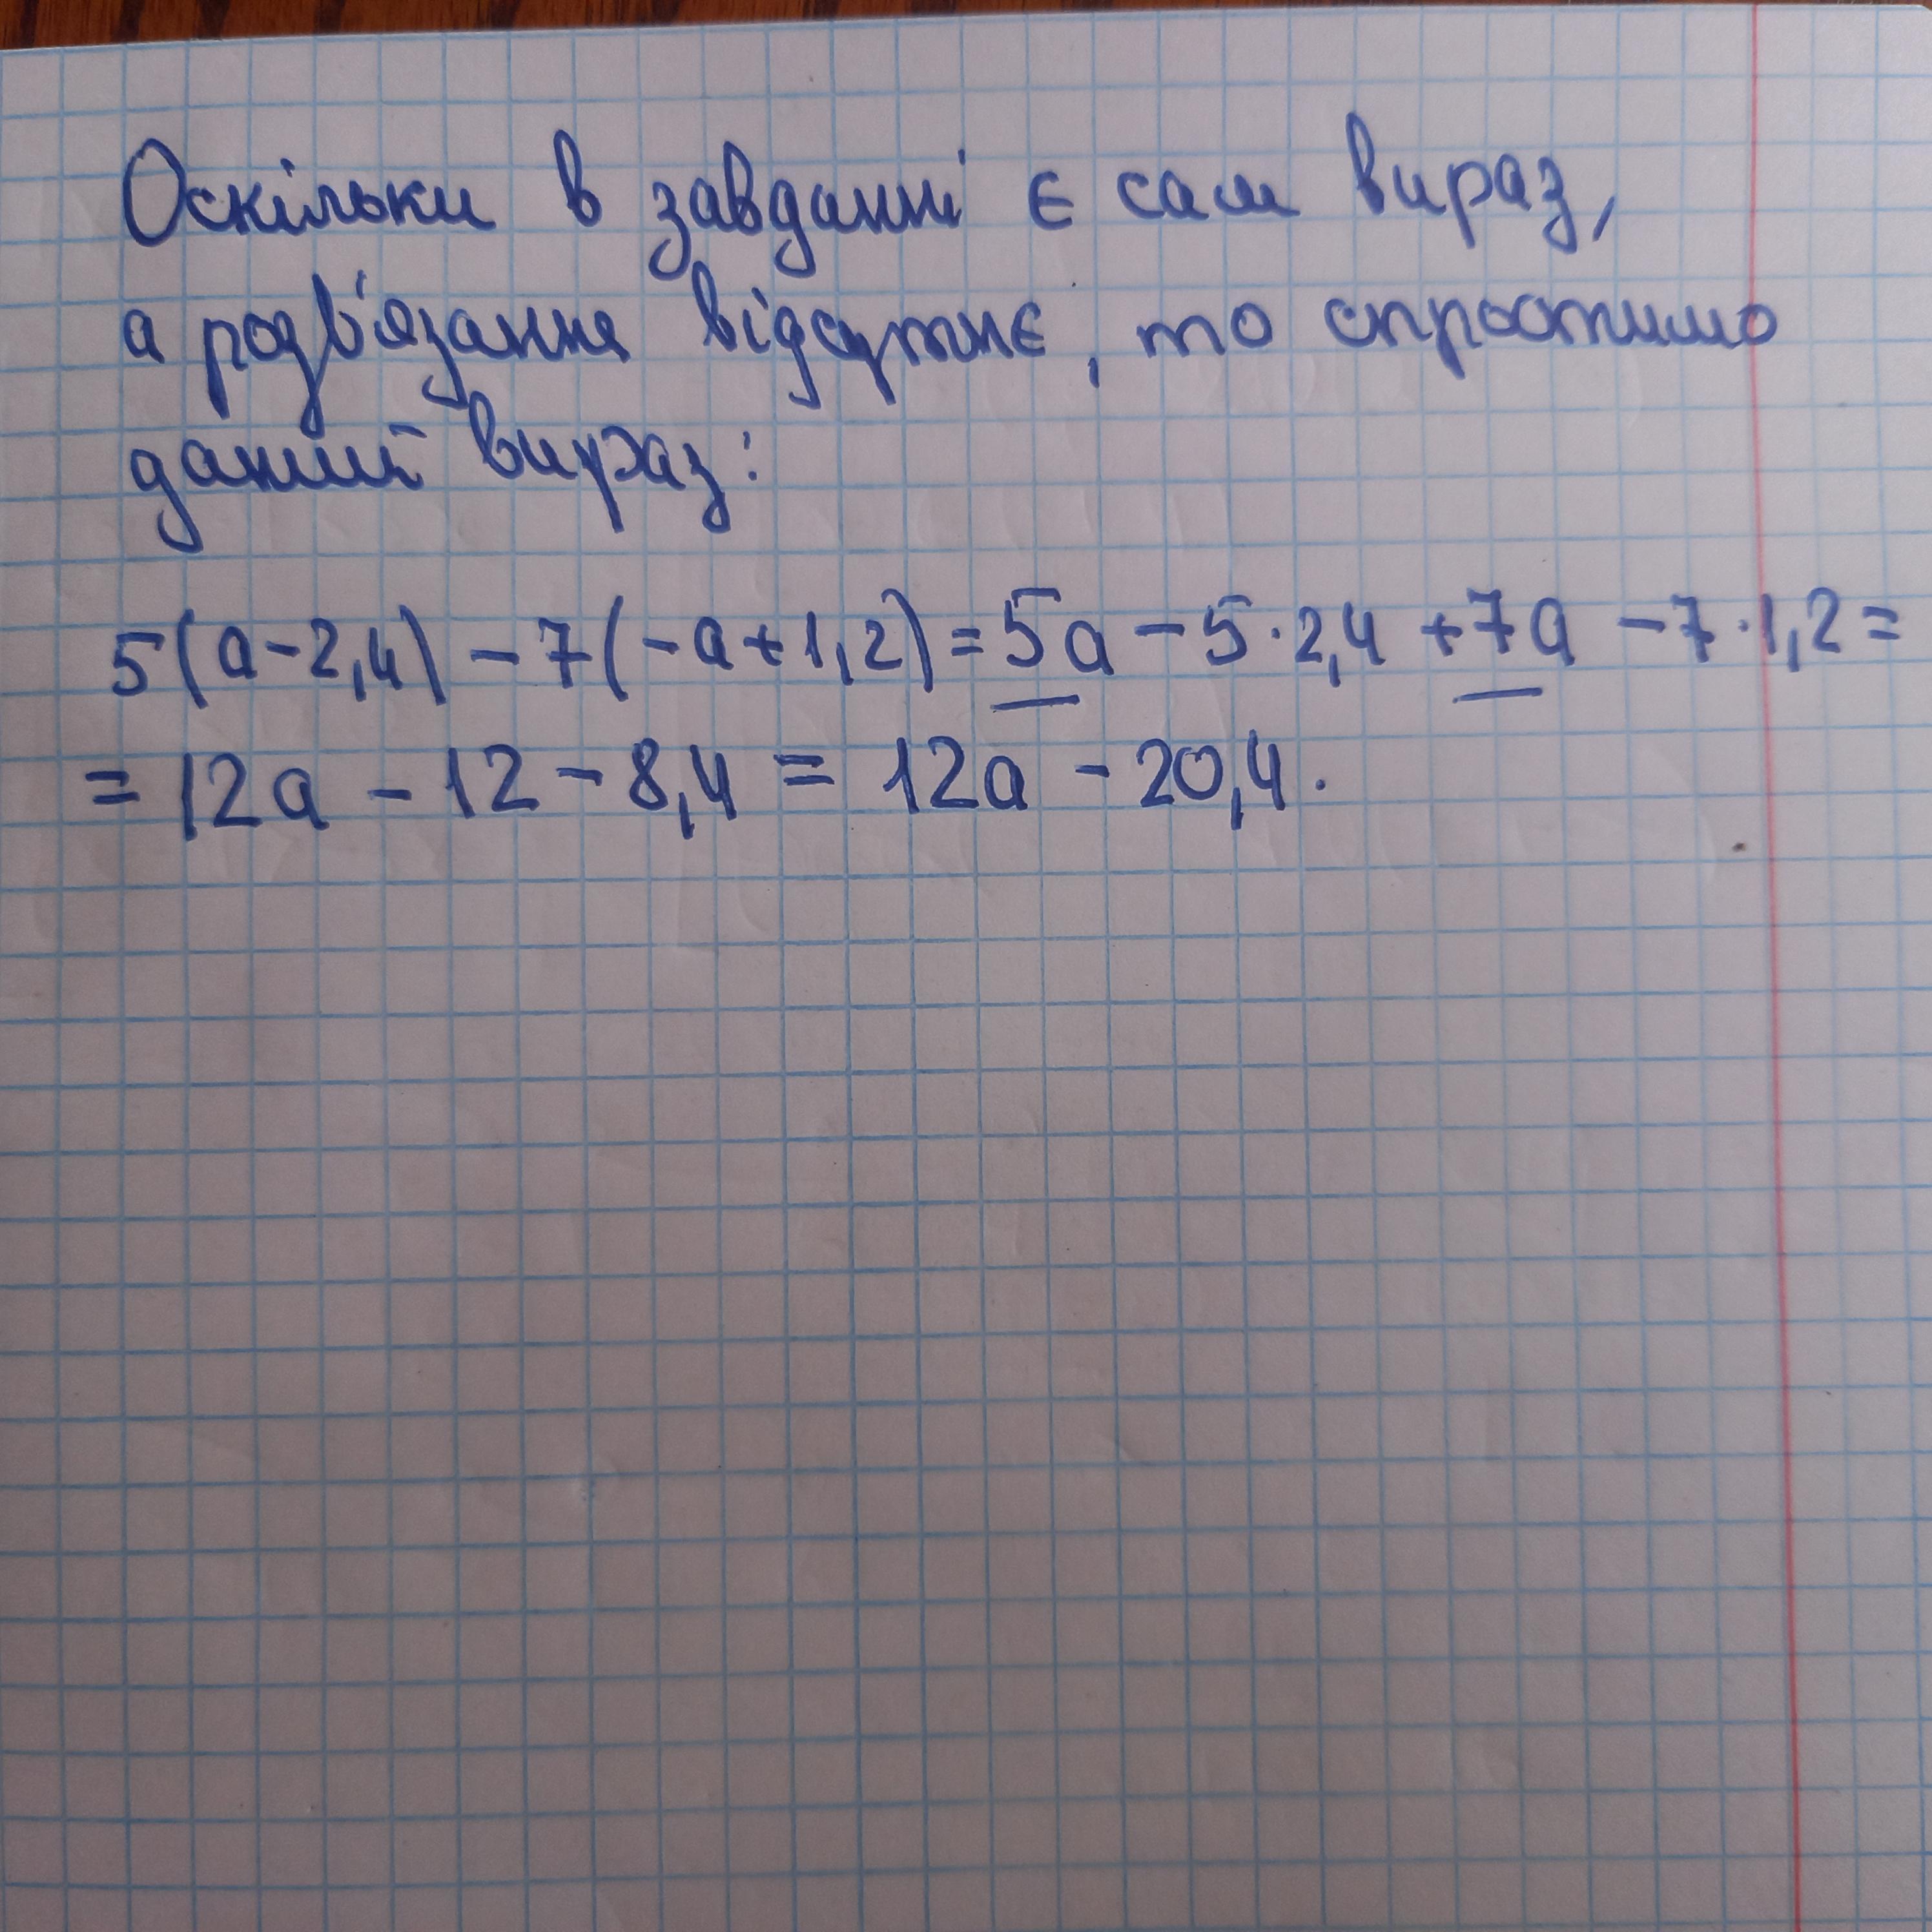 Оскільки в завданні є сам вираз,
а розв'язання відсутнє, то спростимо
даний вираз:
5(a-2,4)-7(-a+1,2)=5a-5·2,4+7a-7·1,2=
=12a-12-8,4=12a-20,4.